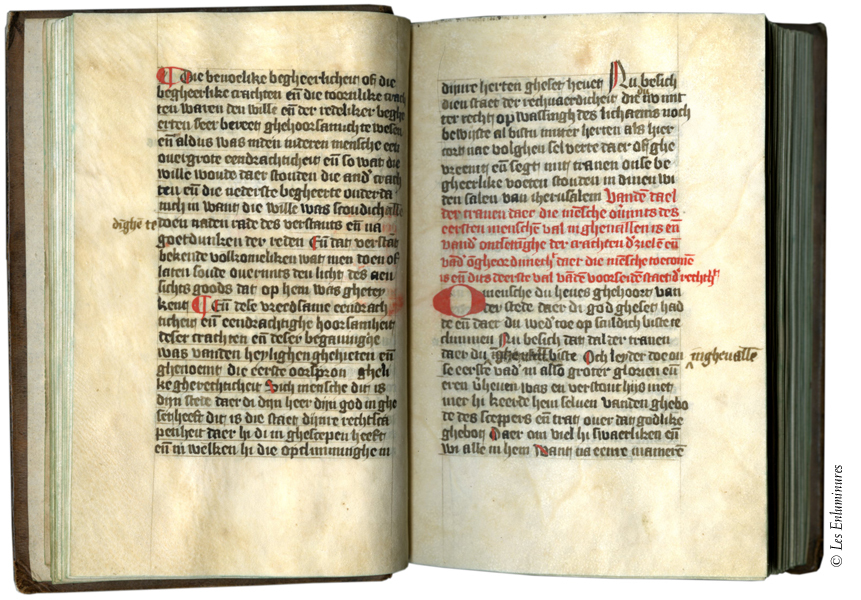 Die bevoelike begheerlicheit ofte die
begheerlike crachten en̄ die toornlike crach
ten waren den wille en̄ der redeliker begh
erten seer bereet ghehoorsamich te wesen
en̄ aldus was inden inderen mensche een
overgrote eendrachticheit en̄ so wat die
wille woude daer stonden die and' crach
ten en̄ die nederste begheerte onder da
nich in want die wille was
dinghē te doen naden rade des verstants en̄ na
goetdunken der reden En̄ dat verstāt
bekende volkomeliken wat men doen of
laten soude overmits den licht des aen
sichts goods dat op hem was ghetey
kent En̄ dese vreedsame eendrach
ticheit en̄ eendrachtighe hoorsamheit
deser crachten en̄ deser begavinghe
was vanden heylighen ghehieten en̄
ghenoemt die eerste oorspron gheli
ke gherechticheit Sich mensche dit is
dijn stede daer di dijn heer dijn god in ghe
set heeft dit is die staet dijnre rechtsca
penheit daer hi di in ghescepen heeft
en̄ in welken hi die opclimminghe in
dijnre herten gheset hevet Nu besich
dien staet der rechtvaerdicheit die du mit
ter rechter opwassingh des lichaems noch
bewijste al bistu mitter herten als hier
cort nae volghen sel verre daer of ghe
vreemt en̄ segt mit tranen onse be
gheerlike voeten stonden in dinen wi
den salen van iherusalem Vandē dael
der tranen daer die mēsche ov'mits des
eersten menschen val in ghevallen is en̄
vand' ontsettinghe der crachten d' ziele en̄
vād' ongheordineth' daer die mēsche toe comē
is en̄ dits deerste val vandē voorseidē staet d' rechth'
O mensche du heves ghehoort van
der stede daer di god gheset had
de en̄ daer du wed' toe op sculdich biste te
clymmen Nu besich dat dal der tranen
daer du biste Och leyder doe on inghevallē
se eerste vad' in also groter glorien en̄
eren v'heven was en verstont hijs niet
mer hi keerde hem selven vanden ghebo
te des sceppers en̄ trat over dat godlike
ghebot Daer om viel hi swaerliken en̄
wi alle in hem Want na eenre manierē
© Les Enluminures